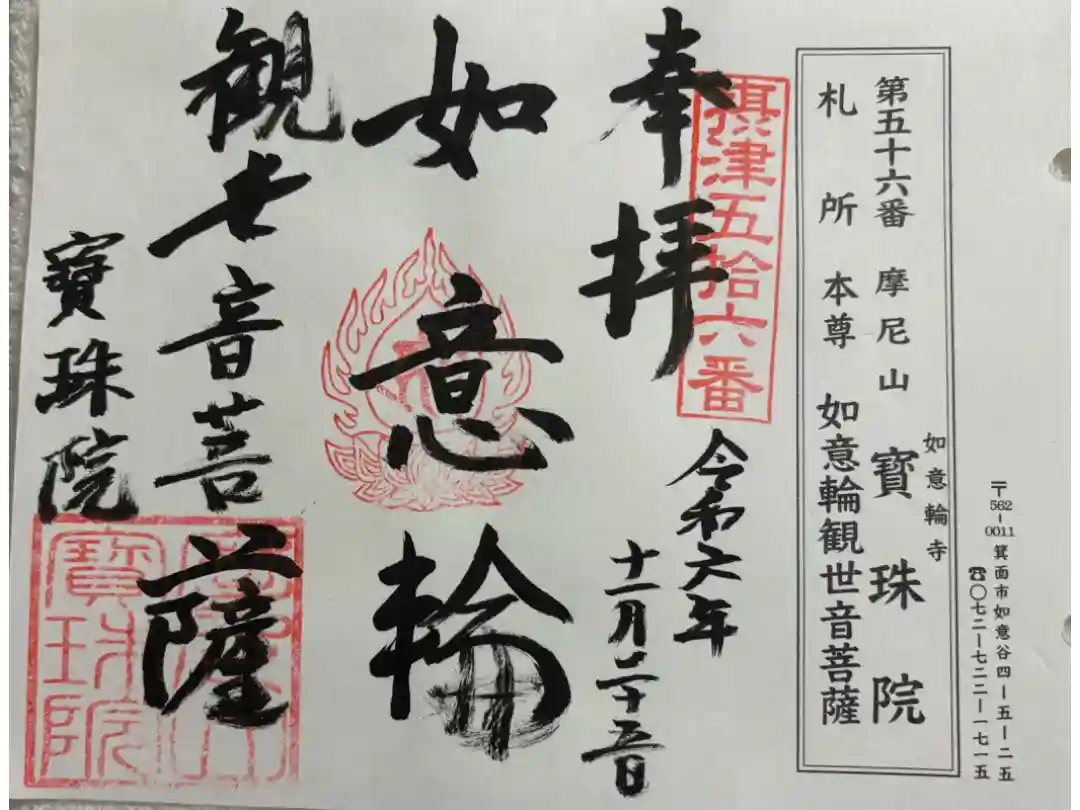 〒562-0011 箕面市如意谷四ー五ー二五
☎〇七二ー七二二ー一七一五
如意輪寺
第五十六番 摩尼山 寶珠院
札所 本尊 如意輪観世音菩薩
摂津五拾六番
奉拝
令和六年
十一月二十五日
如意輪
観世音菩薩
寶珠院
寶珠院